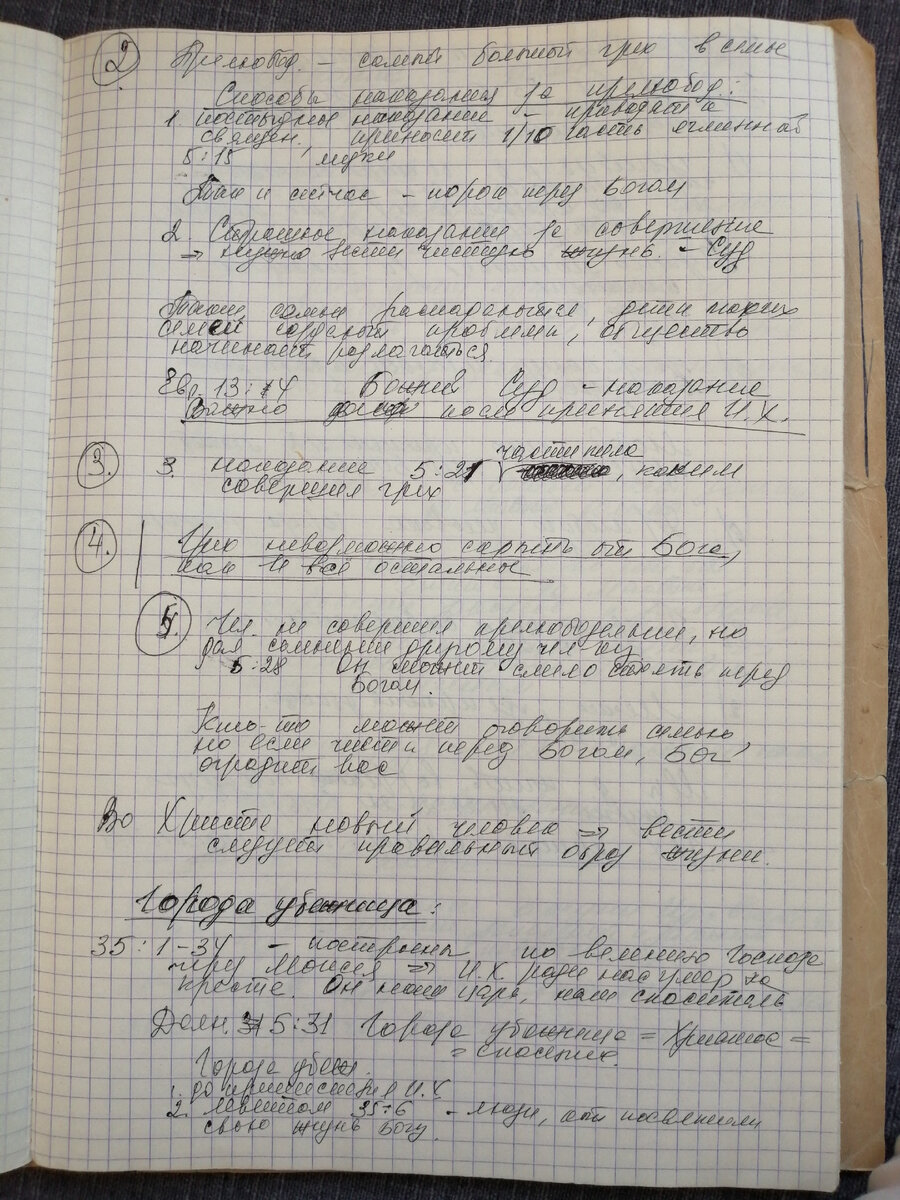 2. Прелюбод. – самый большой грех в семье
Способы наказания за прелюбод.:
1. постыдное наказание – приводят к
священ., приносят 1/10 часть ячменной
5:15 муки
Так и сейчас – порок перед Богом
2. Страшное наказание за совершение
⇒ нужно вести чистую жизнь. – Суд
Такие семьи распадаются, дети таких
семей создают проблемы, общество
начинает разлагаться.
Евр. 13:4 Божий Суд – наказание
Важно даже после принятия И.Х.
3. 3. наказание 5:21 части тела, каким
совершил грех
4. Грех невозможно скрыть от Бога,
как и всё остальное
5. Чел. не совершил прелюбодеяния, но
дал сомнения другому чел-ку
5:28 Он может смело стоять перед
Богом.
Кто-то может оговорить семью
но если чист перед Богом, Бог
оградит вас
Во Христе новый человек ⇒ вести
следует правильный образ жизни.
Города убежища:
35:1–34 – построены по велению Господа
через Моисея ⇒ И.Х. ради нас умер на
кресте. Он наш царь, наш спаситель.
Деян. 5:31 Города убежища = Христос =
= спасение.
Города убеж.
1. до пришествия И.Х
2. левитам 35:6 – люди, посвятили
свою жизнь Богу.